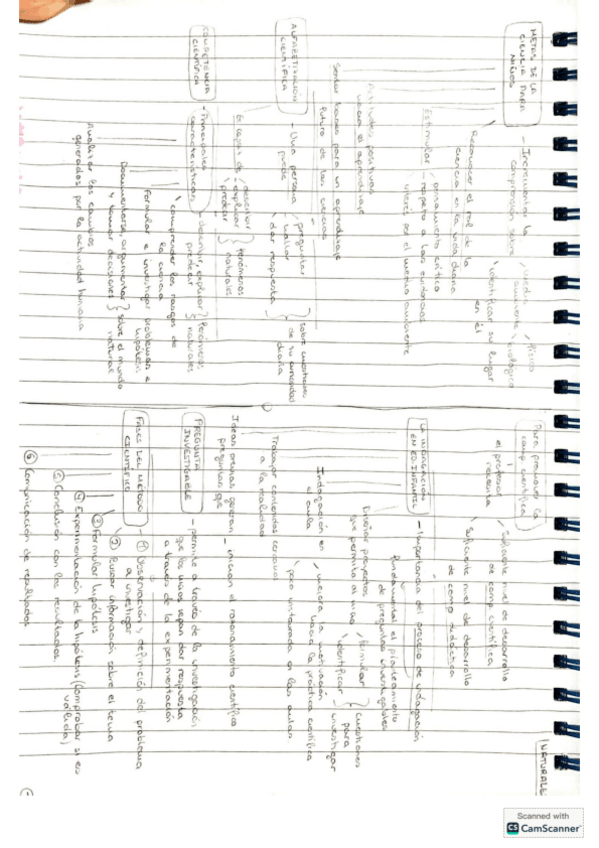 METAS DE LA
CIENCIA PARA
NIÑOS
- Incrementar la
comprensión sobre
medio
ambiente
físico
biológico
identificar su lugar
en él
Reconocer el rol de la
ciencia en la vida diaria
Estimular
pensamiento crítico
respeto a las evidencias
interés por el medio ambiente
Actitudes positivas
hacia el aprendizaje
Sentar bases para un aprendizaje
futuro de las ciencias
ALFABETIZACIÓN
CIENTÍFICA
- Una persona
puede
preguntar
hallar
dar respuesta
sobre cuestiones
de su
diaria
Es capaz de
describir
explicar
predecir
fenómenos
naturales
COMPETENCIA
CIENTÍFICA
- Principales
características
- Describir, explicar
predecir
fenómenos
naturales
Comprender los rasgos de
la ciencia
Formular e investigar problemas e
hipótesis
Documentarse, argumentar
y tomar decisiones
sobre el mundo
natural
Analizar los cambios
generados por la actividad humana
NATURALE
Para promover la
comp científica
el profesor
necesita
Suficiente nivel de desarrollo
de comp científica
Suficiente nivel de desarrollo
de comp didáctica
LA INDAGACIÓN
EN ED. INFANTIL
- Importancia del proceso de indagación
Fundamental el planteamiento
de preguntas investigables
Diseñar proyectos
que permita al niño
formular
identificar
cuestiones
para
investigar
Indagación en
el aula
mejora la motivación
hacia la práctica científica
poco
en las aulas
Trabajar contenidos cercanos
a la realidad
Ideas previas generan
preguntas que
- inician el razonamiento científico
PREGUNTA
INVESTIGABLE
- permite a través de la investigación
que los niños sepan dar respuesta
a través de la experimentación
FASES DEL MÉTODO
CIENTÍFICO
- ① Observación y definición del problema
a investigar
② Buscar información sobre el tema
③ Formular hipótesis
④ Experimentación de la hipótesis (comprobar si es
válida)
⑤ Conclusión con los resultados
⑥ Comunicación de resultados
Scanned with
CS CamScanner